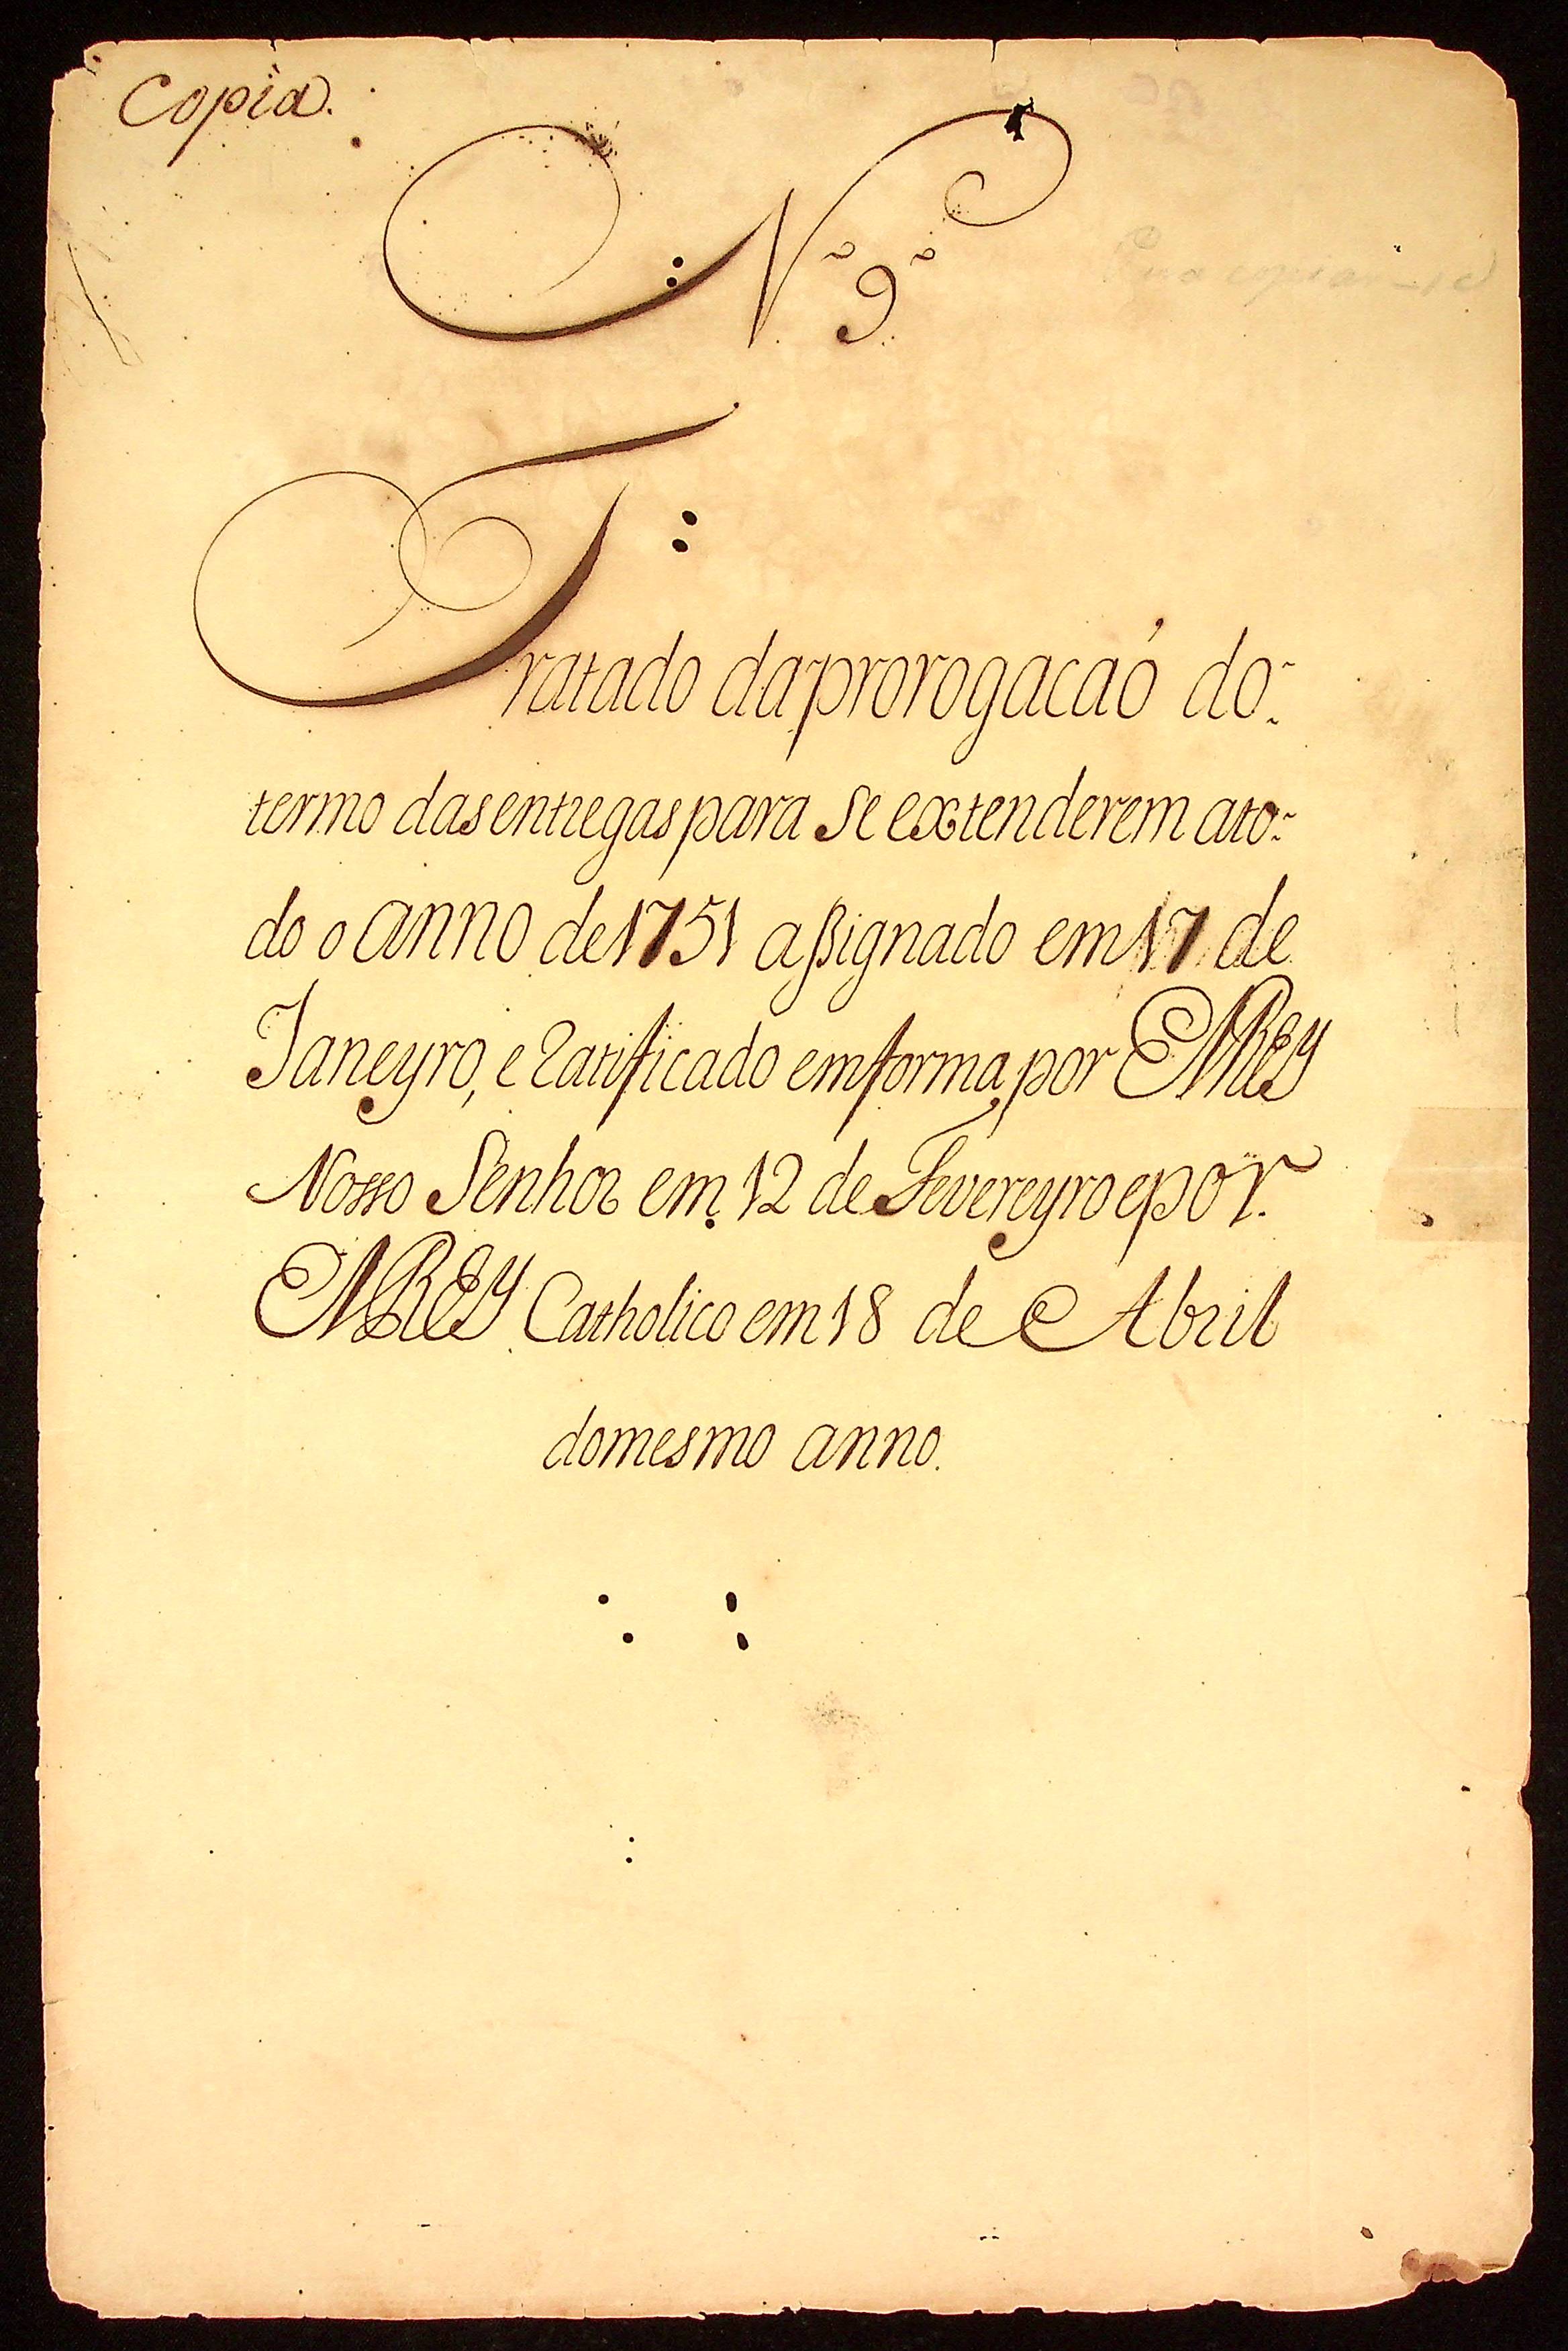 Copia.
N.º 9.º
Tratado daprorogacaó do
termo dasentregaspara Se extenderem ato-
do o anno de 1751 assignado em 17 de
Janeyro, e Ratificado emforma por ElREY
Nosso Senhor em 12 de Fevereyro epor
ElREY Catholico em 18 de Abril
domesmo anno.